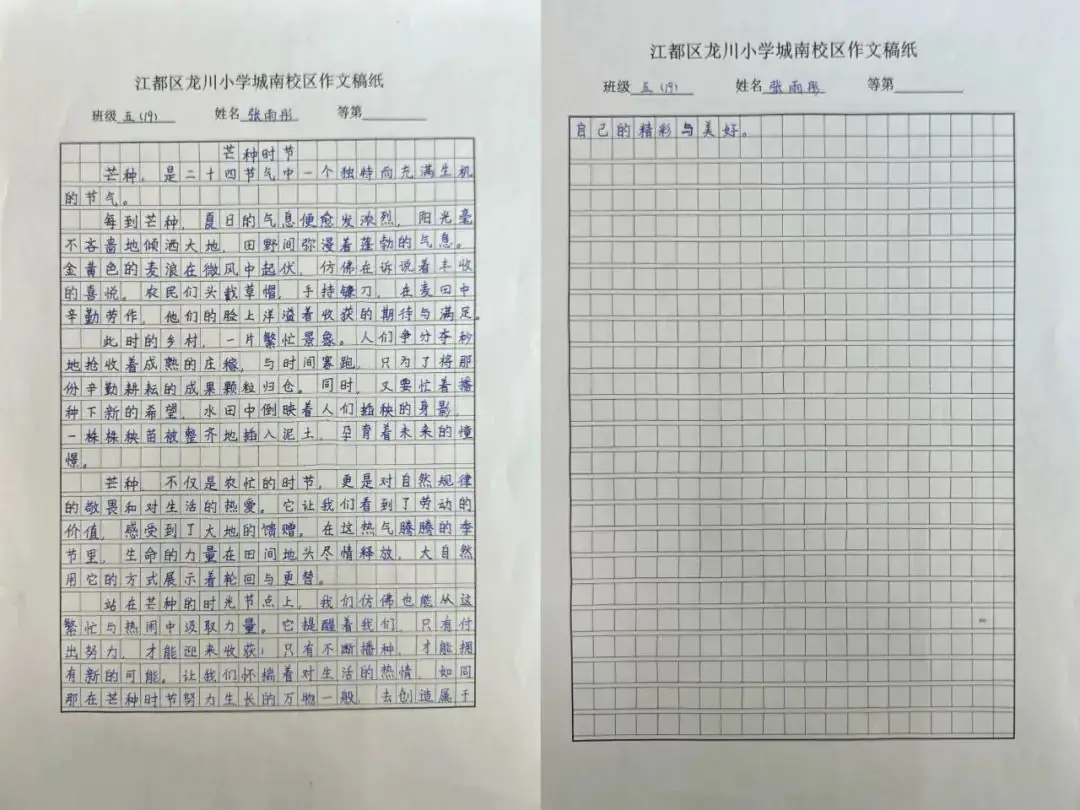 江都区龙川小学城南校区作文稿纸
班级 五(19) 姓名 张雨彤 等第
芒种时节
芒种，是二十四节气中一个独特而充满生机
的节气。
每到芒种，夏日的气息便愈发浓烈，阳光毫
不吝啬地倾洒大地，田野间弥漫着蓬勃的气息。
金黄色的麦浪在微风中起伏，仿佛在诉说着丰收
的喜悦。农民们头戴草帽，手持镰刀，在麦田中
辛勤劳作，他们的脸上洋溢着收获的期待与满足。
此时的乡村，一片繁忙景象。人们争分夺秒
地抢收着成熟的庄稼，与时间赛跑，只为了将那
份辛勤耕耘的成果颗粒归仓。同时，又要忙着播
种下新的希望，水田中倒映着人们插秧的身影，
一株株秧苗被整齐地插入泥土，孕育着未来的憧
憬。
芒种，不仅是农忙的时节，更是对自然规律
的敬畏和对生活的热爱。它让我们看到了劳动的
价值，感受到了大地的馈赠。在这热气腾腾的季
节里，生命的力量在田间地头尽情释放，大自然
用它的方式展示着轮回与更替。
站在芒种的时光节点上，我们仿佛也能从这
繁忙与热闹中汲取力量。它提醒着我们，只有付
出努力，才能迎来收获；只有不断播种，才能拥
有新的可能。让我们怀揣着对生活的热情，如同
那在芒种时节努力生长的万物一般，去创造属于
江都区龙川小学城南校区作文稿纸
班级 五(19) 姓名 张雨彤 等第
自己的精彩与美好。